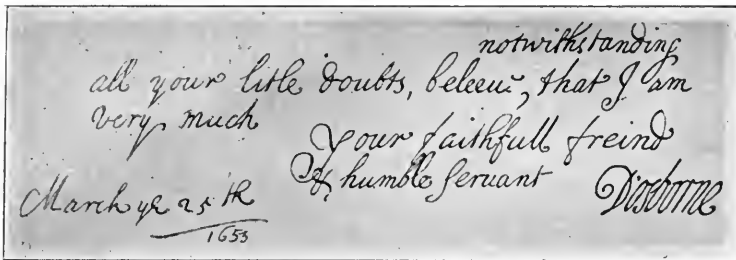 notwithstanding
all your litle doubts, beleeue, that I am
very much
your faithfull freind
& humble servant
D'osborne
March ye 25th
1653